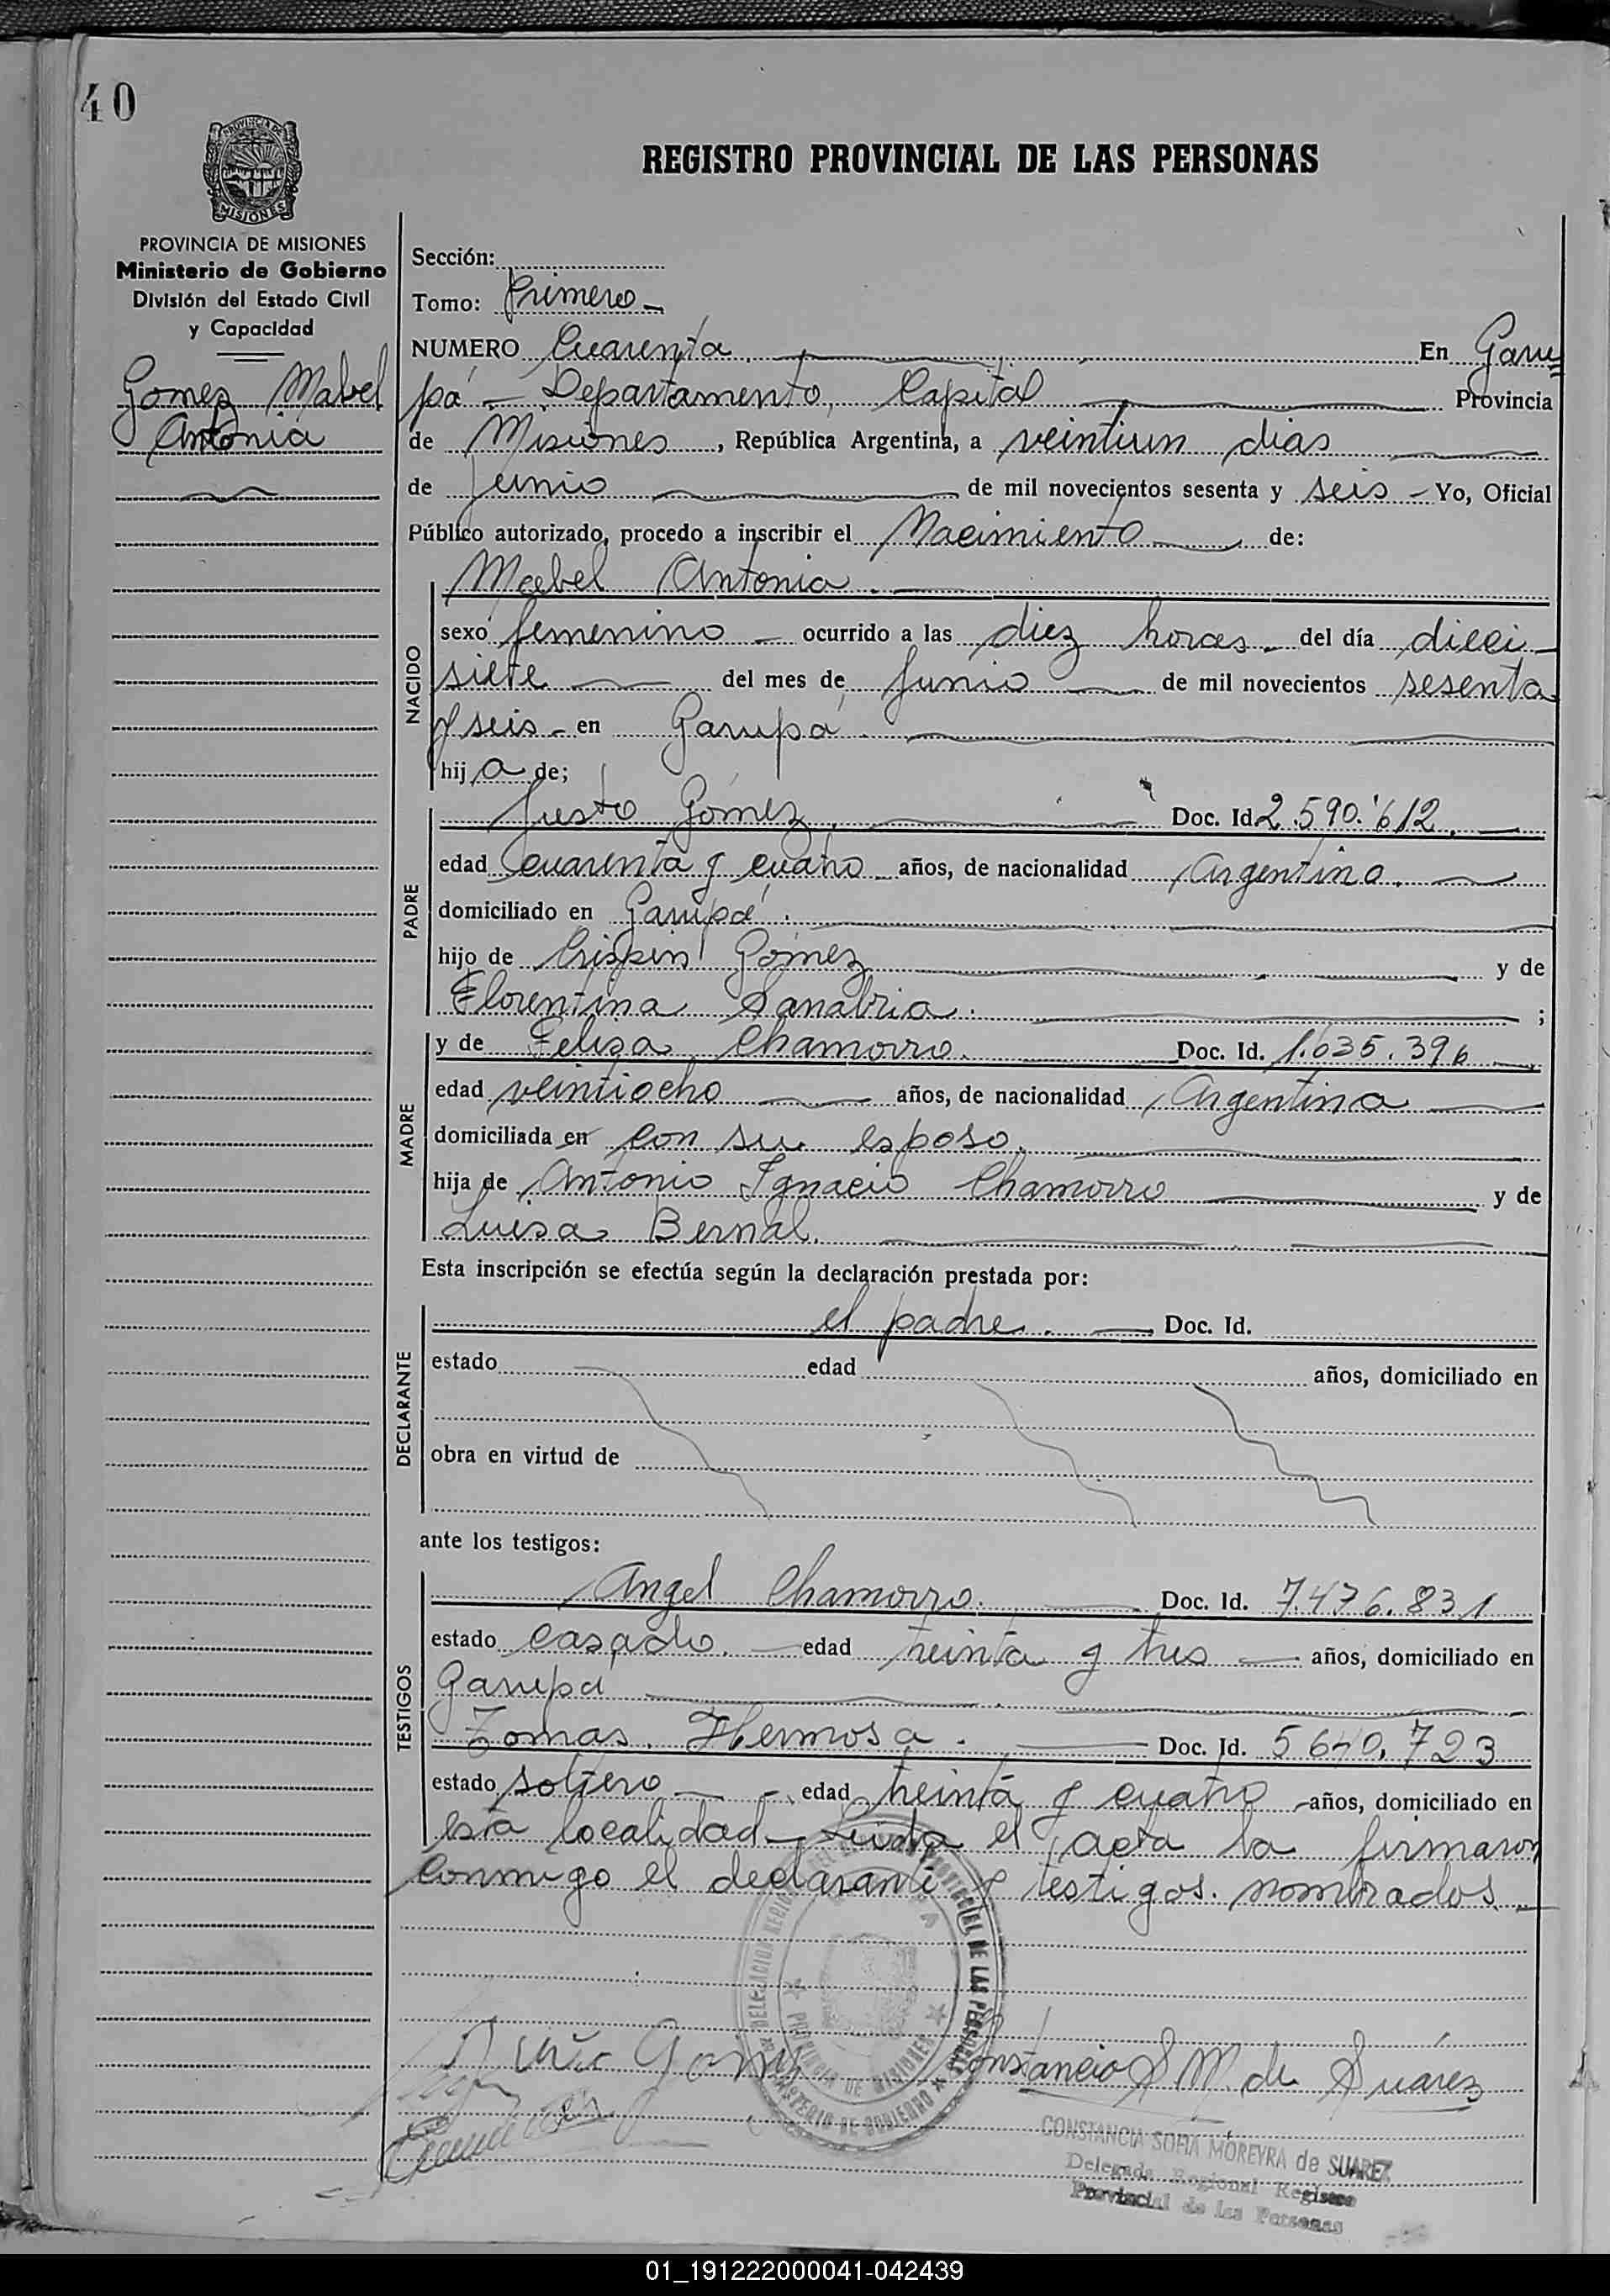 40
PROVINCIA DE
MISIONES
REGISTRO PROVINCIAL DE LAS PERSONAS
PROVINCIA DE MISIONES
Ministerio de Gobierno
División del Estado Civil
y Capacidad
Gomez Mabel
Antonia
Sección:
Tomo: Primero
NUMERO Cuarenta. En Garu=
pá - Departamento, Capital Provincia
de Misiones, República Argentina, a veintiun dias
de Junio de mil novecientos sesenta y seis - Yo, Oficial
Público autorizado, procedo a inscribir el Nacimiento de:
NACIDO
Mabel Antonia.
sexo femenino - ocurrido a las diez horas - del día dieci-
siete del mes de Junio de mil novecientos sesenta
y seis - en Garupá.
hija de;
PADRE
Justo Gómez. Doc. Id. 2.590.612.
edad cuarenta y cuatro años, de nacionalidad Argentino.
domiciliado en Garupá.
hijo de Crispin Gómez y de
Florentina Sanabria. ;
MADRE
y de Feliza Chamorro. Doc. Id. 1.635.396
edad veintiocho años, de nacionalidad Argentina
domiciliada en con su esposo.
hija de Antonio Ignacio Chamorro y de
Luisa Bernal.
Esta inscripción se efectúa según la declaración prestada por:
DECLARANTE
el padre. Doc. Id.
estado edad años, domiciliado en
obra en virtud de
ante los testigos:
TESTIGOS
Angel Chamorro. Doc. Id. 7.476.831
estado casado. edad treinta y tres años, domiciliado en
Garupá
Tomas. Hermosa. Doc. Id. 5640.723
estado soltero edad treinta y cuatro años, domiciliado en
esta localidad - Leida el acta la firmaron
conmigo el declarante y testigos. nombrados
Constancia S M. de Suárez
CONSTANCIA SOFIA MOREYRA de SUAREZ
Delegada Regional Registro
Provincial de las Personas
01_191222000041-042439